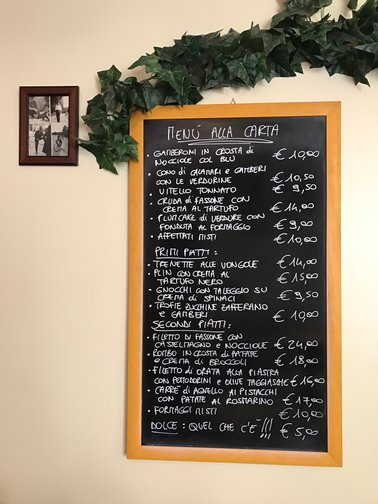 MENÙ ALLA CARTA
• GAMBERONI IN CROSTA di
NOCCIOLE COL BLU € 10,00
• CONO di CALAMARI e GAMBERI
CON LE VERDURINE € 10,50
• VITELLO TONNATO € 9,50
• CRUDA di FASSONE CON
CREMA AL TARTUFO € 14,00
• PLUMCAKE di VERDURE CON
FONDUTA AL FORMAGGIO € 9,00
• AFFETTATI MISTI € 10,00
PRIMI PIATTI:
• TRENETTE ALLE VONGOLE € 14,00
• PLIN CON CREMA AL
TARTUFO NERO € 15,00
• GNOCCHI CON TALEGGIO SU
CREMA DI SPINACI € 9,50
• TROFIE ZUCCHINE ZAFFERANO
e GAMBERI € 10,00
SECONDI PIATTI:
• FILETTO DI FASSONE CON
CASTELMAGNO e NOCCIOLE € 24,00
• ROMBO IN CROSTA DI PATATE
e CREMA DI BROCCOLI € 18,00
• FILETTO di ORATA ALLA PIASTRA
CON POMODORINI e OLIVE TAGGIASCHE € 16,00
• CARRE' di AGNELLO AI PISTACCHI
CON PATATE AL ROSMARINO € 17,00
• FORMAGGI MISTI € 10,00
DOLCE: QUEL CHE C'È!!! € 5,00